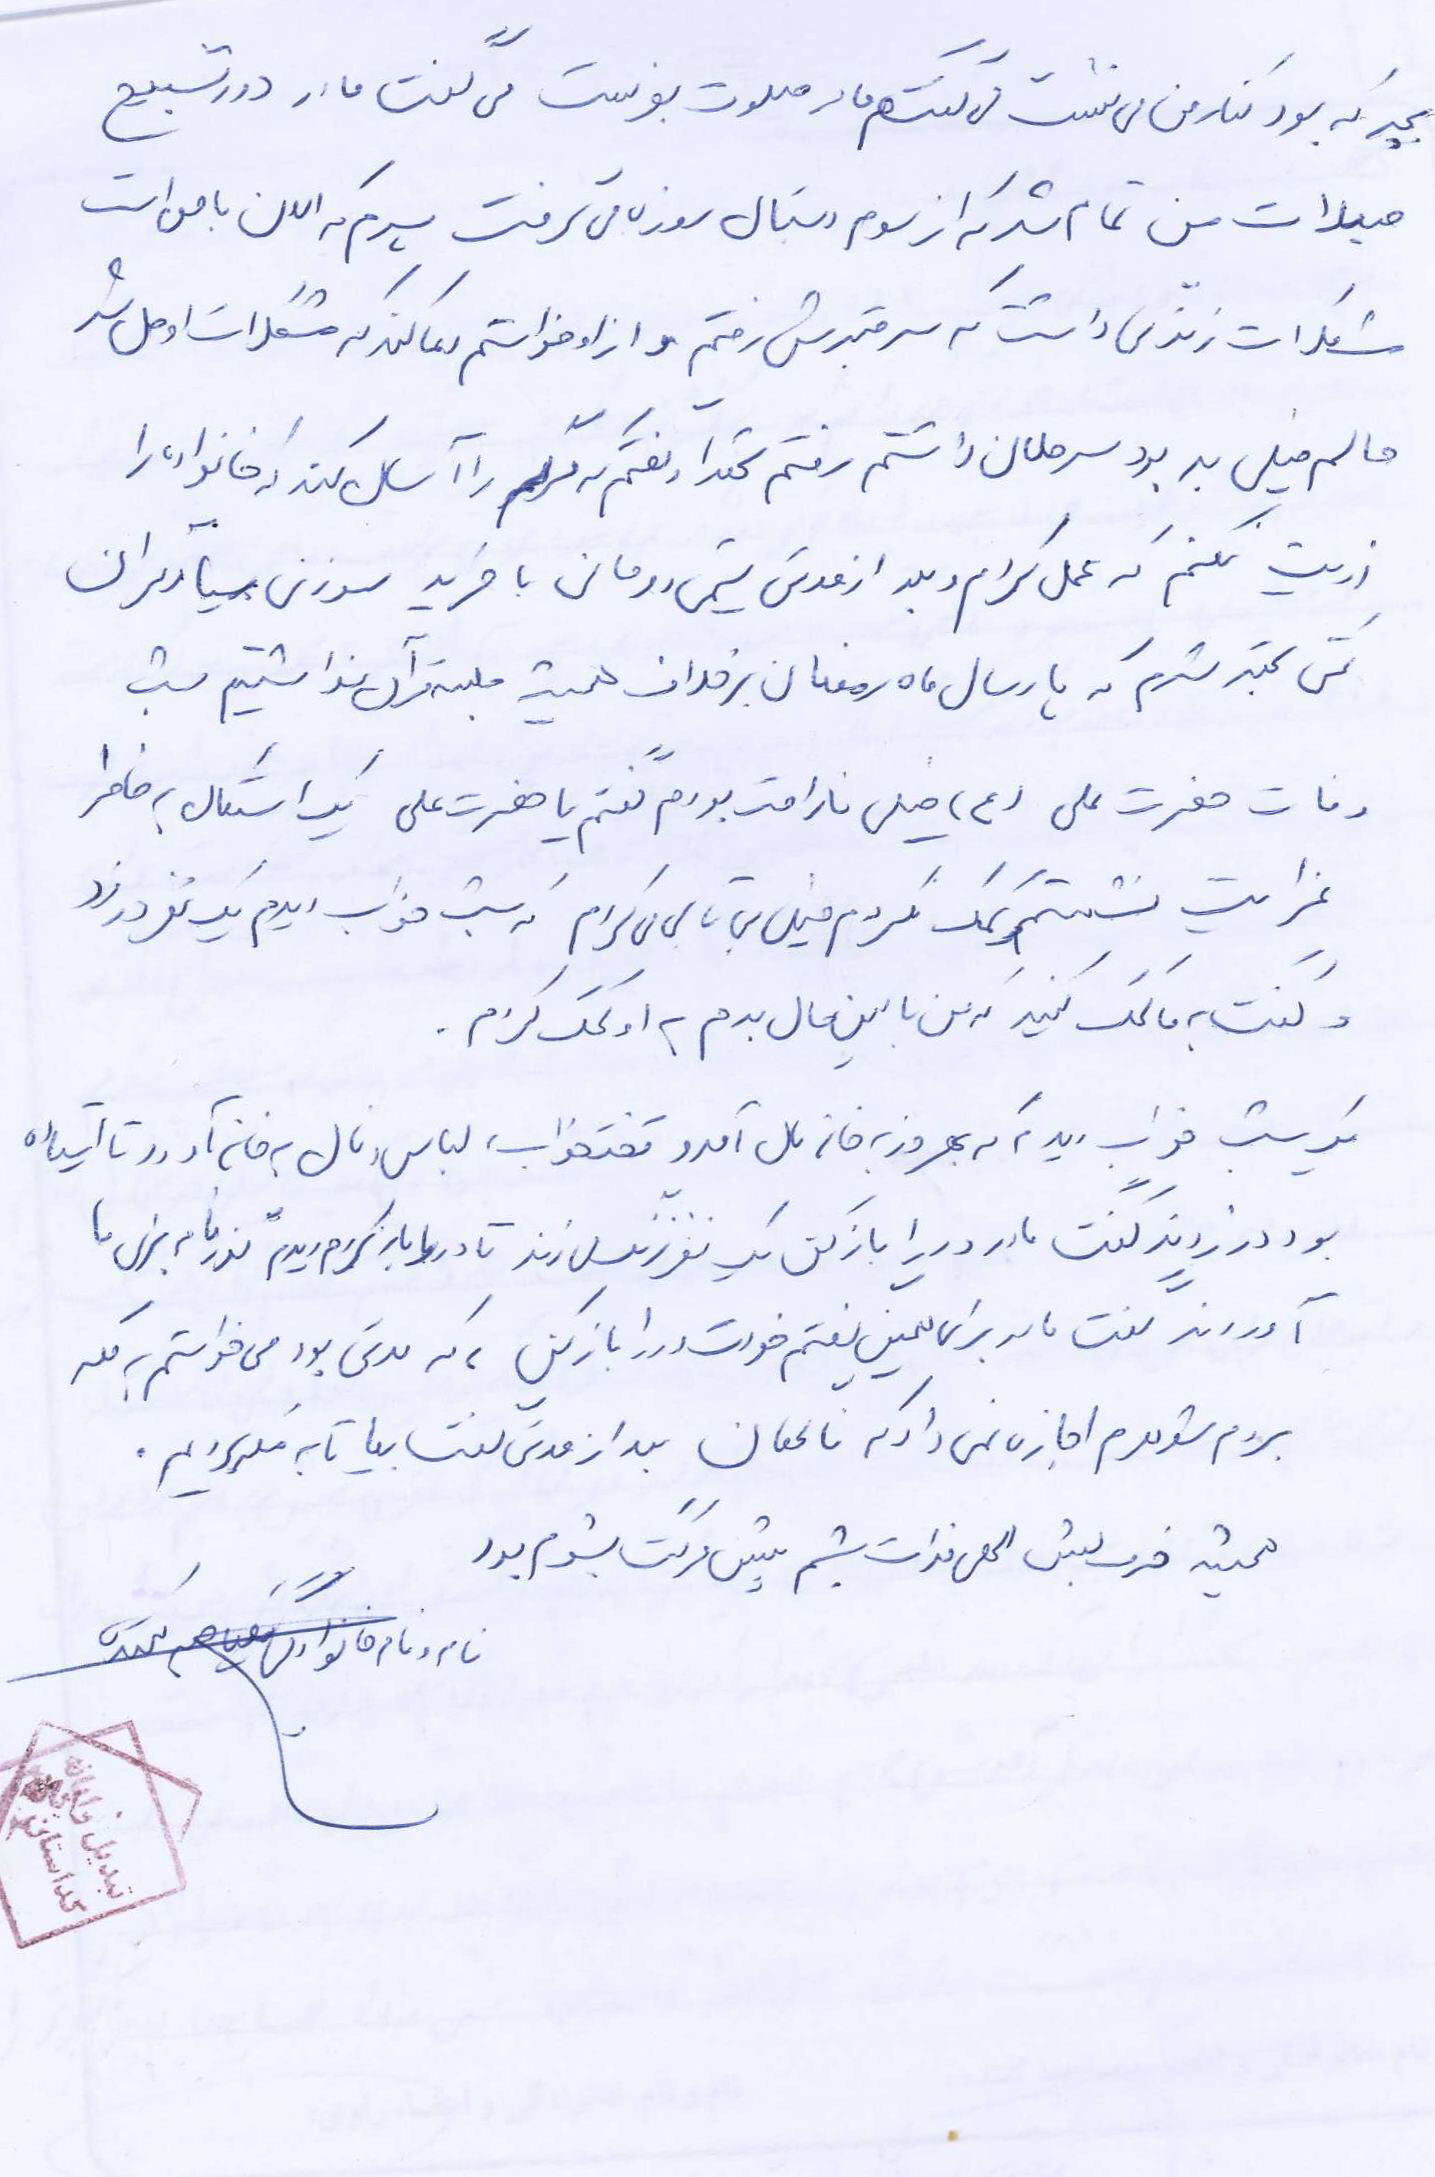 بچه که بود کنار من می نشست می گفت مادر صلوت بفرست می گفت مادر دور تسبیح
صلوات من تمام شد که از سوم دبستان روزه می گرفت پسرم که الان با من است
مشکلات زندگی داشت که سر قبرش رفتم و از او خواستم دعا کند که مشکلات او حل شد
حالم خیلی بد بود سرطان داشتم رفتم بخدا گفتم که مرگم را آسان کند که خانواده را
اذیت نکنم که عمل کردم و بعد از مدتی شیمی درمانی با فرید سوزنی بسیار گران
کمی بهتر شدم که پارسال ماه رمضان برخلاف همیشه جلسه قرآن نداشتیم شب
وفات حضرت علی (ع) خیلی ناراحت بودم گفتم یا حضرت علی یک اشکال به خاطر
غرابت نشستم کمک نکردم خیلی بی تابی می کردم که شب خواب دیدم یک نفر در زد
و گفت به ما کمک کنید که من با همین حال بدم به او کمک کردم .
یک شب خواب دیدم که بهروز به خانه مان آمد و تختخواب، لباس و مال به خانه آورد تا آماده
بود در زدند گفت مادر در را باز کن یک نفر زنگ می زند تا در را باز کردم دیدم نذرنامه برای ما
آوردند گفت مادر برای همین گفتم خودت در را باز کنی ، که مدتی بود می خواستم به مکه
بروم شوهرم اجازه نمی داد که ناگهان بعد از مدتی گفت بیا تا به مکه برویم .
همیشه حرف لبش الهی فدات بشم پیش مرگت بشوم بود
نام و نام خانوادگی